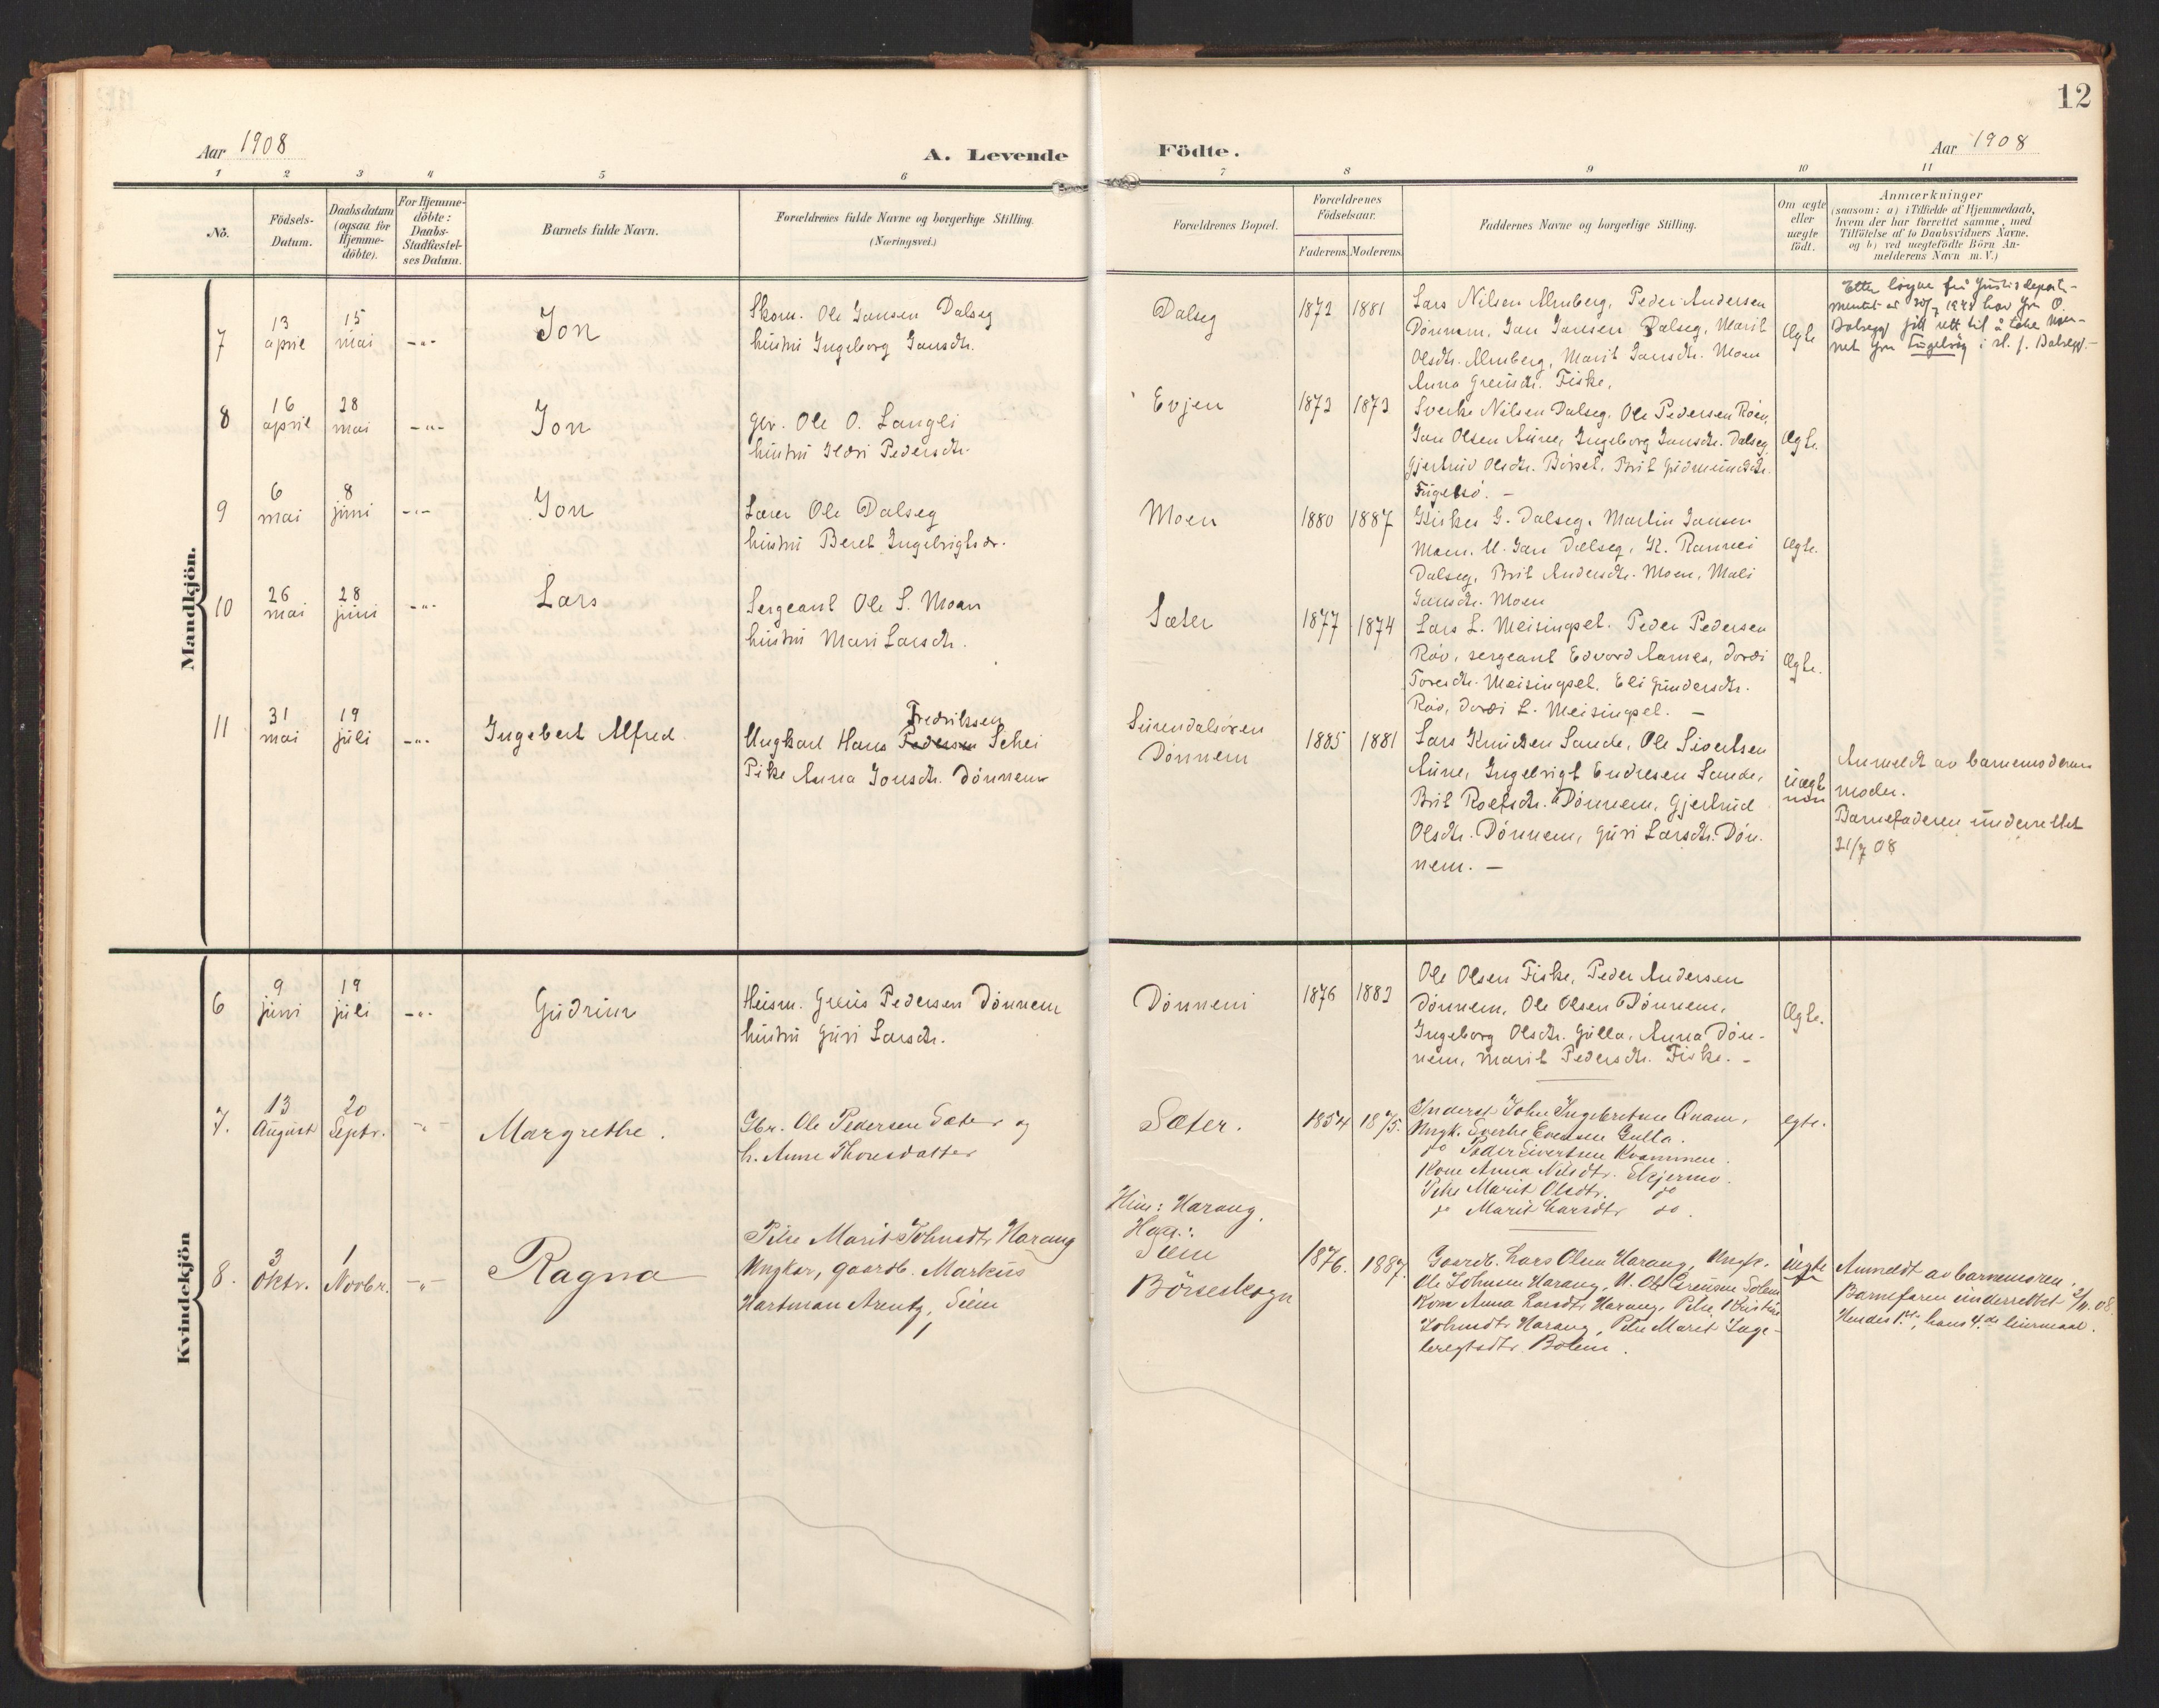 12
Aar 1908
A. Levende
Födte.
Aar 1908
1 2 3 4 5 6 7 8 9 10 11
No.
Födsels-
Datum.
Daabsdatum
(ogsaa for
Hjemme-
döbte).
For Hjemme-
döbte:
Daabs-
Stadfæstel-
ses Datum.
Barnets fulde Navn.
Forældrenes fulde Navne og borgerlige Stilling.
(Næringsvei.)
Forældrenes Bopæl.
Forældrenes
Födselsaar.
Faderens. Moderens.
Faddernes Navne og borgerlige Stilling.
Om ægte
eller
uægte
födt.
Anmærkninger
(saasom: a) i Tilfælde af Hjemmedaab,
hvem der har forrettet samme, med
Tilföielse af to Daabsvidners Navne,
og b) ved uægtefödte Börn An-
melderens Navn m. V.)
Mandkjön.
7
13
april
15
mai
-"-
Jon
Skom. Ole Jonsen Dalseg
hustru Ingeborg Jonsdtr.
Dalseg
1872 1881
Lars Nilsen Almberg, Peder Andersen
Dönnem, Jon Jonsen Dalseg, Marit
Olsdtr. Almberg, Marit Jonsdtr. Moen
Anna Greisdtr. Fiske.
Ægte
8
16
april
28
mai
-"-
Jon
Gbr. Ole O. Langli
hustru Ildri Pedersdtr.
Evjen
1873 1873
Sverke Nilsen Dalseg, Ole Pedersen Röen,
Jon Olsen Aune, Ingeborg Jonsdtr. Dalseg,
Gjertrud Olsdtr. Börset, Brit Gudmundsdtr.
Fugelsö. -
Ægte.
9
6
mai
8
juni
-"-
Jon
Lærer Ole Dalseg
hustru Beret Ingebrigtsdr.
Moen
1880 1887
G. Dalseg, Martin Jonsen
Moen, U. Jon Dalseg, K. Rannei
Dalseg, Brit Andersdtr. Moen, Mali
Jonsdtr. Moen
Ægte.
10
26
mai
28
juni
-"-
Lars
Sergeant Ole S. Moen
hustru Mari Larsdtr.
Sæter
1877 1874
Lars L. Meisingset, Peder Pedersen
Röv, sergeant Edvard Aarnes, Dordi
Toresdtr. Meisingset, Eli Gundersdtr.
Röv, Dordi L. Meisingset. -
Ægte.
11
31
mai
19
juli
-"-
Ingebert Alfred
Fredriksen
Ungkarl Hans Pedersen Schei
Pike Anna Jonsdtr. Dönnem
Surendalsören
Dönnem
1885 1881
Lars Knudsen Sande, Ole Sivertsen
Aune, Ingebrigt Endresen Sande,
Brit Roefsdtr. Dönnem, Gjertrud
Olsdtr. Dönnem, Guri Larsdtr. Dön-
nem. -
uægte
Anmeldt av barnemoderens
moder.
Barnefaderen underrettet
21/7 08
Kvindekjön
6
9
juni
19
juli
-"-
Gudrun
Husm. Greis Pedersen Dönnem
hustru Guri Larsdtr.
Dönnem
1876 1883
Ole Olsen Fiske, Peder Andersen
Dönnem, Ole Olsen Dönnem,
Ingeborg Olsdtr. Gulla, Anna Dön-
nem, Marit Pedersdtr. Fiske. -
Ægte.
7.
13
August
20
Septr.
-"-
Margrethe.
Gbr. Ole Pedersen Sæter og
h. Anne Thoresdatter
Sæter.
1854 1875.
John Ingebretsen Qvam,
Ungk. Sverke Evensen Gulla.
do Peder Sivertsen Kvammen.
Kone Anna Nilsdtr. Skjermo.
Pike Marit Olsdtr. do
do Marit Larsdtr do.
egte.
8.
3
Oktr.
1
Novbr.
-"-
Ragna
Pike Marit Johnsdtr Harang
Ungkar, gaardb. Markus
Hartman Arentz, Siem
Hun: Harang.
Han:
Siem
Börseskogn
1876. 1887.
Gaardb. Lars Olsen Harang, Ungk.
Ole Johnsen Harang, U. Ole Greisen Solem
Kone Anna Larsdtr Harang, Pike Kristine
Johnsdtr Harang, Pike Marit Inge-
brigtsdtr Bolme.
uegte
Anmeldt av barnemoren.
Barnefaren underrettet 2/11.08.
Hendes 1ste, hans 4de leiermaal.